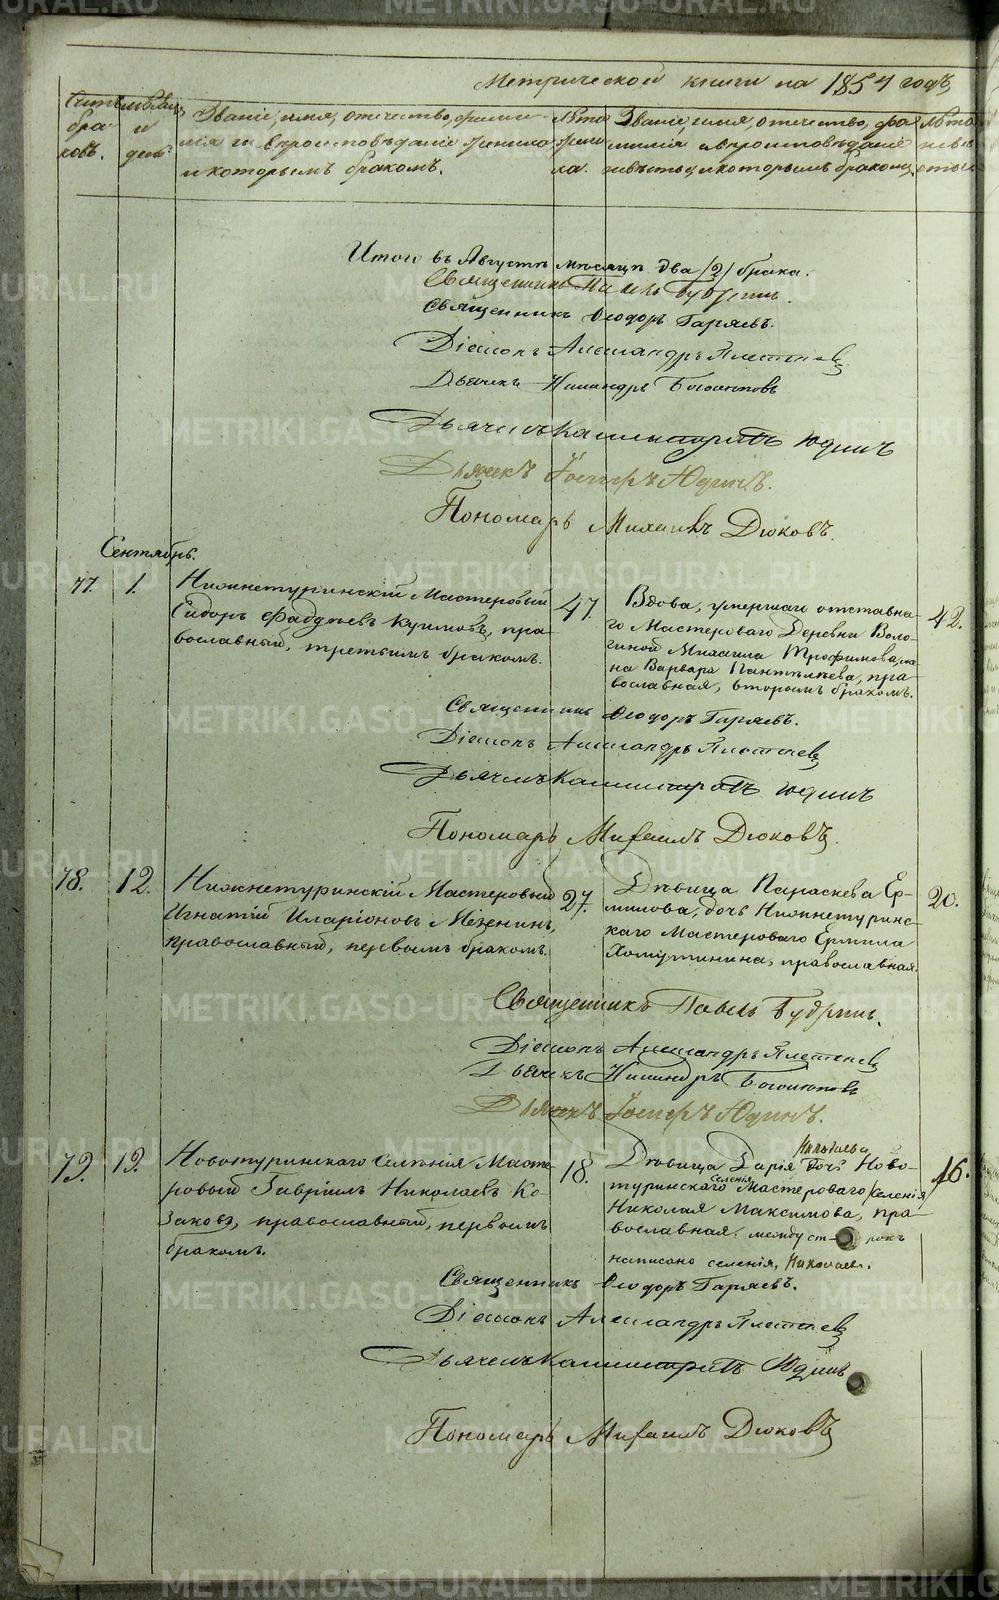 Метрической книги на 1854 годъ,
Счетъ бра-ковъ.
мѣсяцъ и день.
Званіе, имя, отечество, фами-
лія и вѣроисповѣданіе жениха
и которымъ бракомъ.
Лѣта жени-ха.
Званіе, имя, отечество, фа-
милія и вѣроисповѣданіе
невѣсты, и которымъ бракомъ,
Лѣта невѣ-сты
Итого въ Августѣ мѣсяцѣ два /2/ брака.
Священникъ Павелъ Будринъ.
Священникъ Ѳеодоръ Гаряевъ.
Діаконъ Александръ Плетеневъ
Дьячекъ Никандръ Богомоловъ
Дьячекъ Каллистратъ Юдинъ
Дьячекъ Іосифъ Юдинъ.
Пономарь Михаилъ Дюковъ.
Сентябрь.
77. 1. Нижнетуринскій Мастеровый
Сидоръ Фаддѣевъ Куимовъ, пра-
вославный, третьимъ бракомъ.
47.
Вдова, умершаго отставна-
го Мастероваго Деревни Воло-
гиной Михаила Трофимова, же-
на Варвара Пантелѣева, пра-
вославная, вторымъ бракомъ.
42.
Священникъ Ѳеодоръ Гаряевъ.
Діаконъ Александръ Плетеневъ
Дьячекъ Каллистратъ Юдинъ
Пономарь Михаилъ Дюковъ.
78. 12. Нижнетуринскій Мастеровый
Игнатій Иларіоновъ Меженинъ,
православный, первымъ бракомъ.
27.
Дѣвица Параскева Ер-
милова, дочь Нижнетуринс-
каго Мастероваго Ермила
Хомутинина, православная.
20.
Священникъ Павелъ Будринъ.
Діаконъ Александръ Плетеневъ
Дьячекъ Никандръ Богомоловъ
Дьячекъ Іосифъ Юдинъ.
79. 19. Новотуринскаго Селенія Масте-
ровый Гавріилъ Николаевъ Ко-
заковъ, православный, первымъ
бракомъ.
18.
Николаева
Дѣвица Дарія дочь Ново-
селенія
туринскаго Мастероваго /селенія/
Николая Максимова, пра-
вославная. между ст- рокъ
написано селенія, Николаев.
16.
Священникъ Ѳеодоръ Гаряевъ.
Діаконъ Александръ Плетеневъ
Дьячекъ Каллистратъ Юдинъ
Пономарь Михаилъ Дюковъ
METRIKI.GASO-URAL.RU